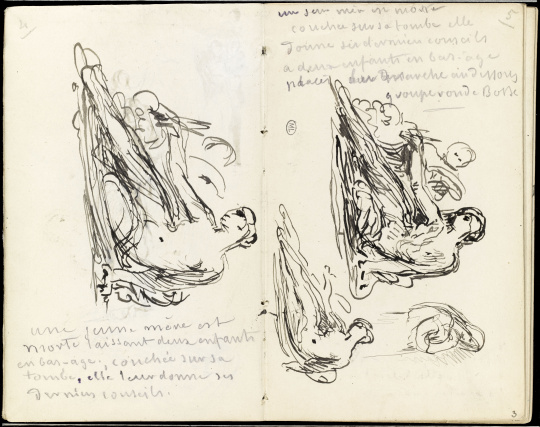 une jeune mère est
morte laissant deux enfants
en bas-age. couchée sur sa
tombe, elle leur donne ses
derniers conseils.
une jeune mère est morte
couchée sur sa tombe elle
donne ses derniers conseils
a deux enfants en bas-age
placés sur marche au dessous
groupe ronde Bosse
3